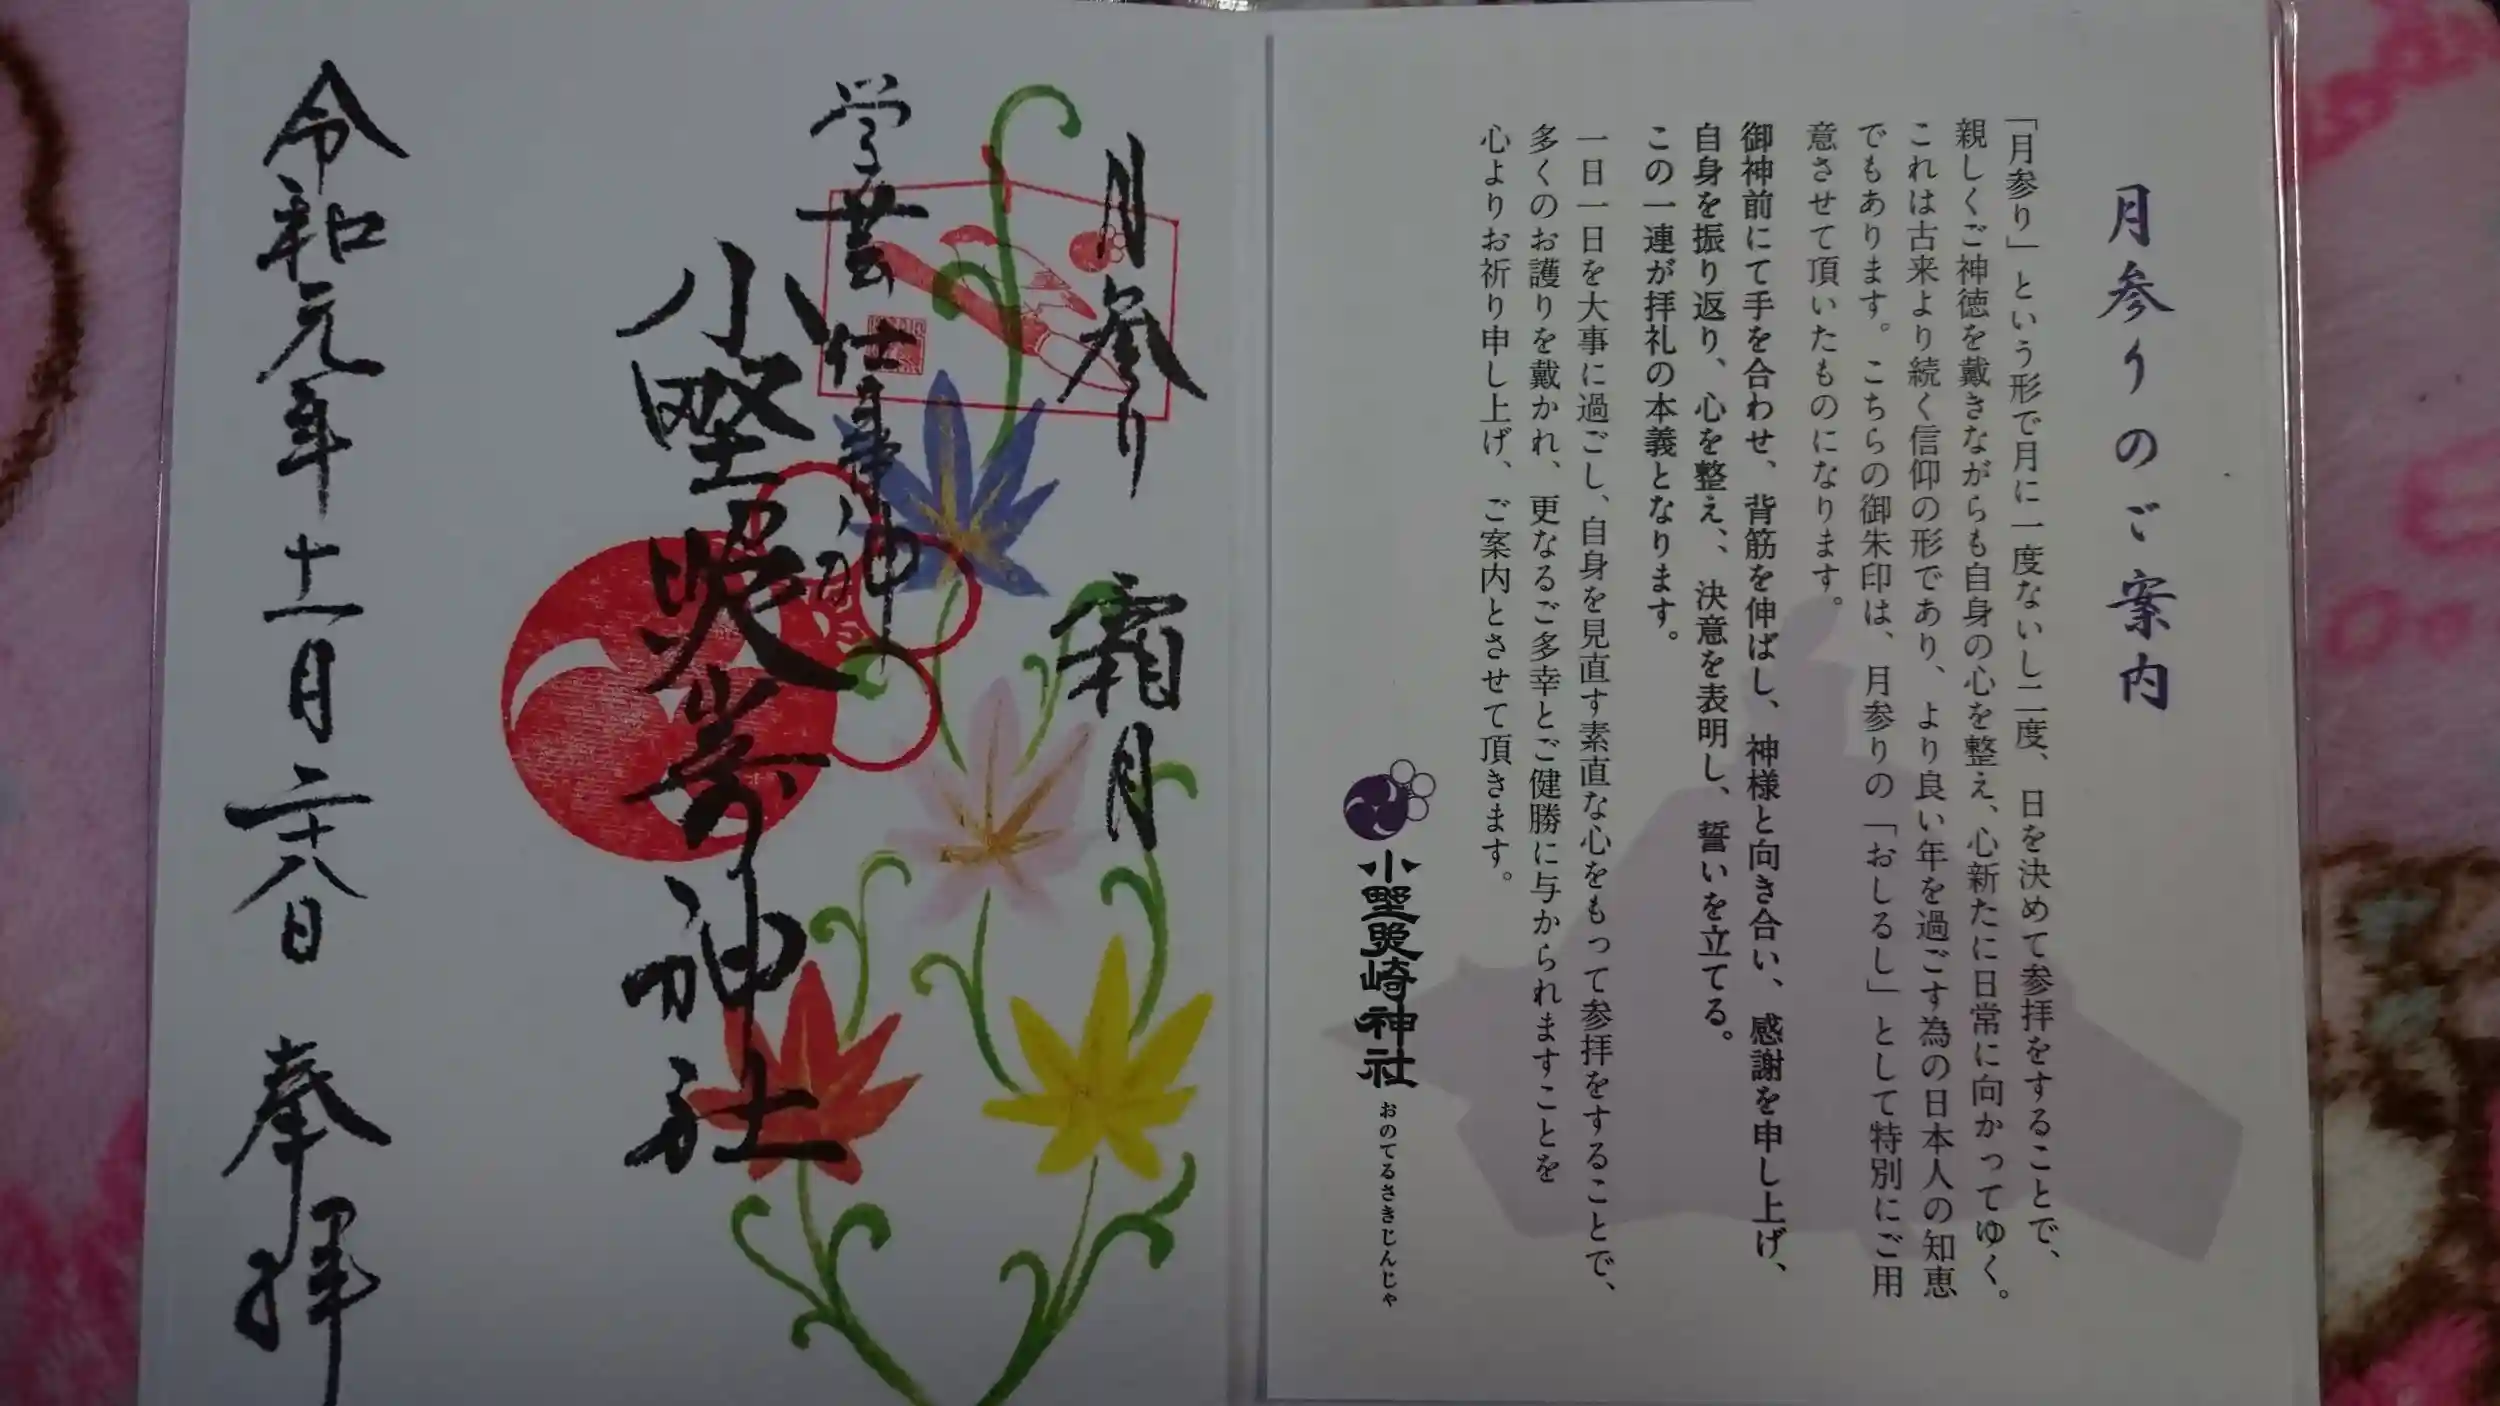 月参りのご案内
「月参り」という形で月に一度ないし二度、日を決めて参拝をすることで、
親しくご神徳を戴きながらも自身の心を整え、心新たに日常に向かってゆく。
これは古来より続く信仰の形であり、より良い年を過ごす為の日本人の知恵
でもあります。こちらの御朱印は、月参りの「おしるし」として特別にご用
意させて頂いたものになります。
御神前にて手を合わせ、背筋を伸ばし、神様と向き合い、感謝を申し上げ、
自身を振り返り、心を整え、、決意を表明し、誓いを立てる。
この一連が拝礼の本義となります。
一日一日を大事に過ごし、自身を見直す素直な心をもって参拝をすることで、
多くのお護りを戴かれ、更なるご多幸とご健勝に与かられますことを
心よりお祈り申し上げ、ご案内とさせて頂きます。
小野照崎神社
おのてるさきじんじゃ
月参り 霜月
学芸 仕事神
小野照崎神社
令和元年十一月二十八日 奉拝